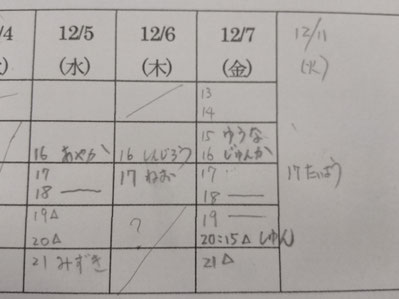 /4 12/5 12/6 12/7 12/11
(水) (木) (金) (火)
13
14
15 ゆうな
16 あやか 16 しんじろう 16 じゅんか
17 17 ねお 17 17 たいよう
18 — 18 —
19△ ? 19 —
20△ 20:15△ しゅん
21 みずき 21△